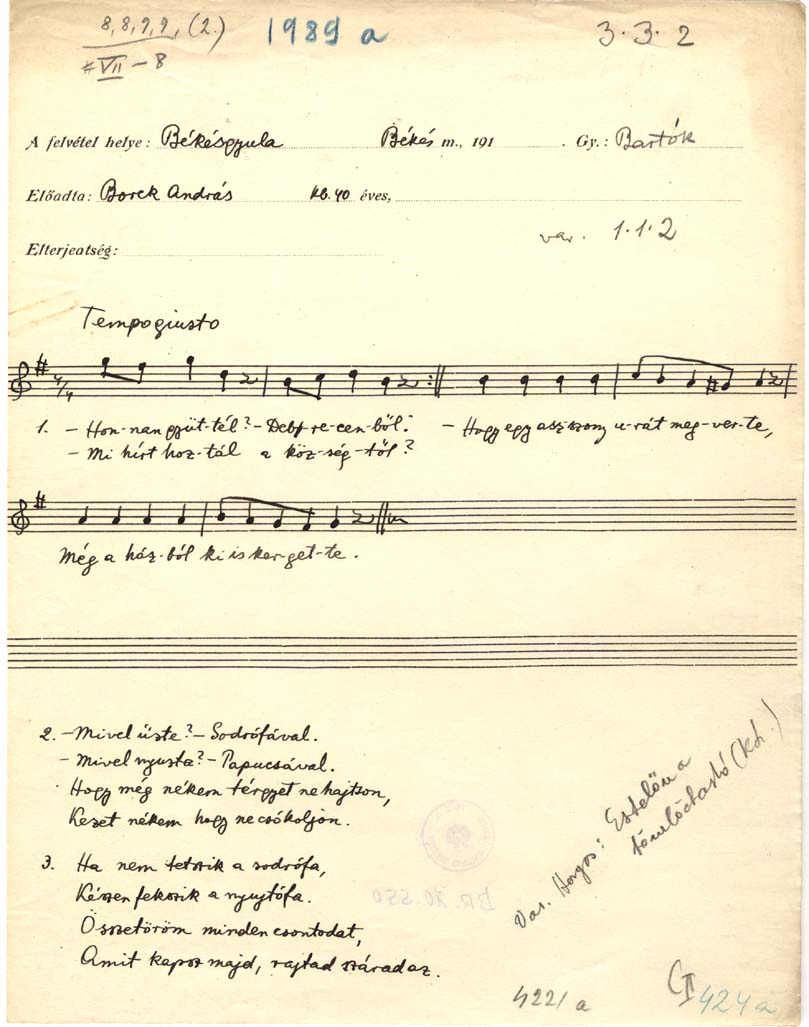 8, 8, 9, 9, (2.) 1989 a 3·3·2
VII – 8
A felvétel helye: Békésgyula Békés m., 191 . Gy.: Bartók
Előadta: Borek András kb. 40 éves,
var. 1·1·2
Elterjeatség:
Tempo giusto
4/4
1. – Hon-nan gyüt-tél? – Deb-re-cen-ből. – Hogy egy asz-szony u-rát meg-ver-te,
– Mi hírt hoz-tál a köz-ség-től?
Még a ház-ból ki is ker-get-te.
2. – Mivel üste? – Sodrófával.
– Mivel nyusta? – Papucsával.
Hogy még nékem térgyet ne hajtson,
Kezet nékem hogy ne csókoljon.
3. Ha nem tetszik a sodrófa,
Készen fekszik a nyujtófa.
Össetöröm minden csontodat,
Amit kapsz majd, rajtad szárad az.
BR. 10.550
Var. Horgos:
4221 a
C II 424 a